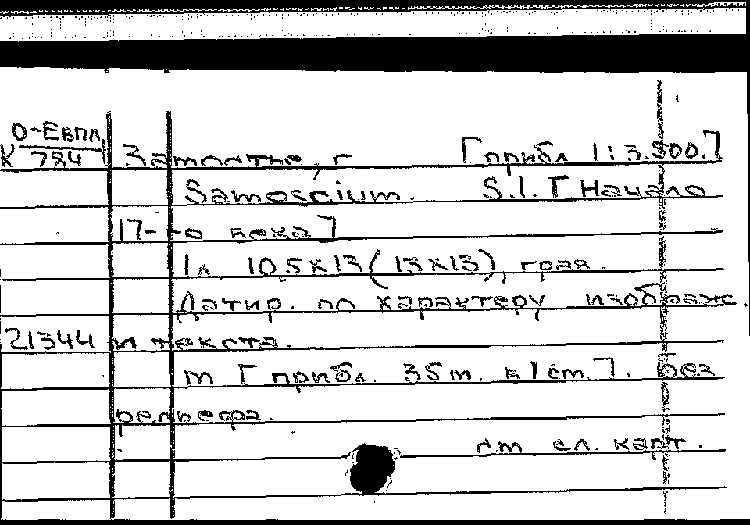 О-Евпл
К 784 Замостье, г [прибл 1:3.500.]
Samoscium. S.l. [Начало
17-го века]
1л. 10,5х13(13х13), грав.
Датир. по характеру изображ.
21344 и текста.
m [прибл. 35m. в 1 cm.]. Без
рельефа.
см сл. карт.